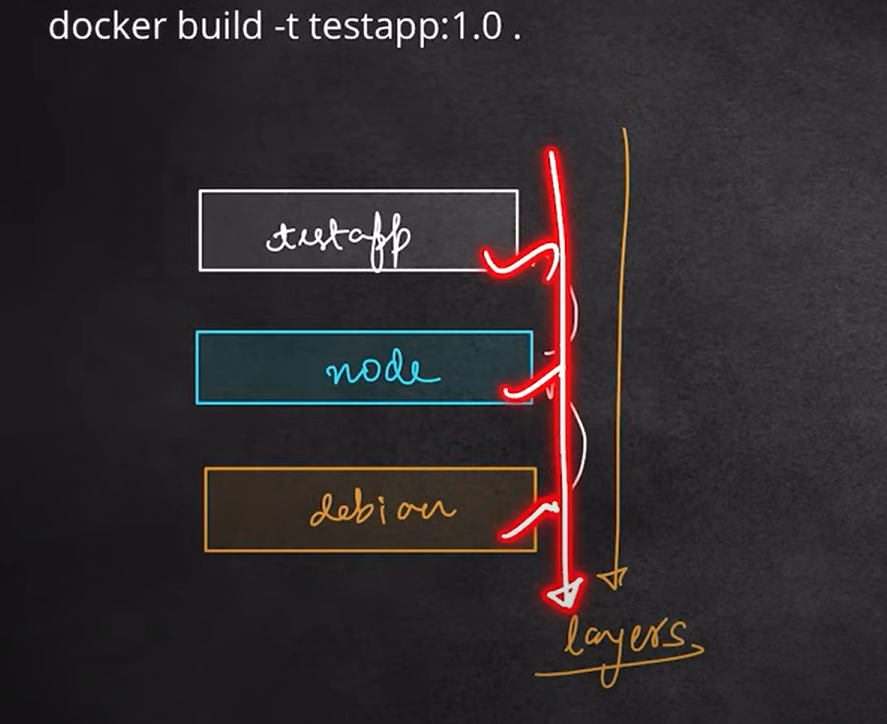 docker build -t testapp:1.0 .
testapp
node
debian
layers